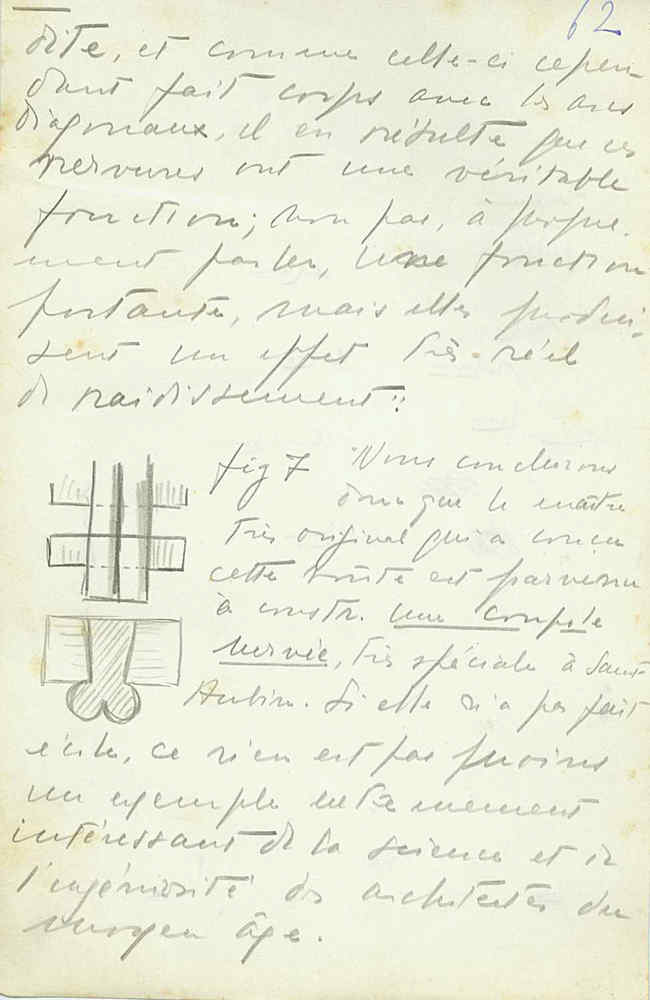 62
dite, et comme celle-ci cepen-
dant fait corps avec les arcs
diagonaux, il en résulte que ces
nervures ont une véritable
fonction; non pas, à propre-
ment parler, une fonction
portante, mais elles produi-
sent un effet très réel
de raidissement :
fig 7 Nous conclurons
donc que le maître
très original qui a conçu
cette voûte est parvenu
à constr. une coupole
nervée, très spéciale à Saint-
Aubin. Si elle n'a pas fait
école, ce n'en est pas moins
un exemple extrêmement
intéressant de la science et de
l'ingéniosité des architectes du
moyen âge.